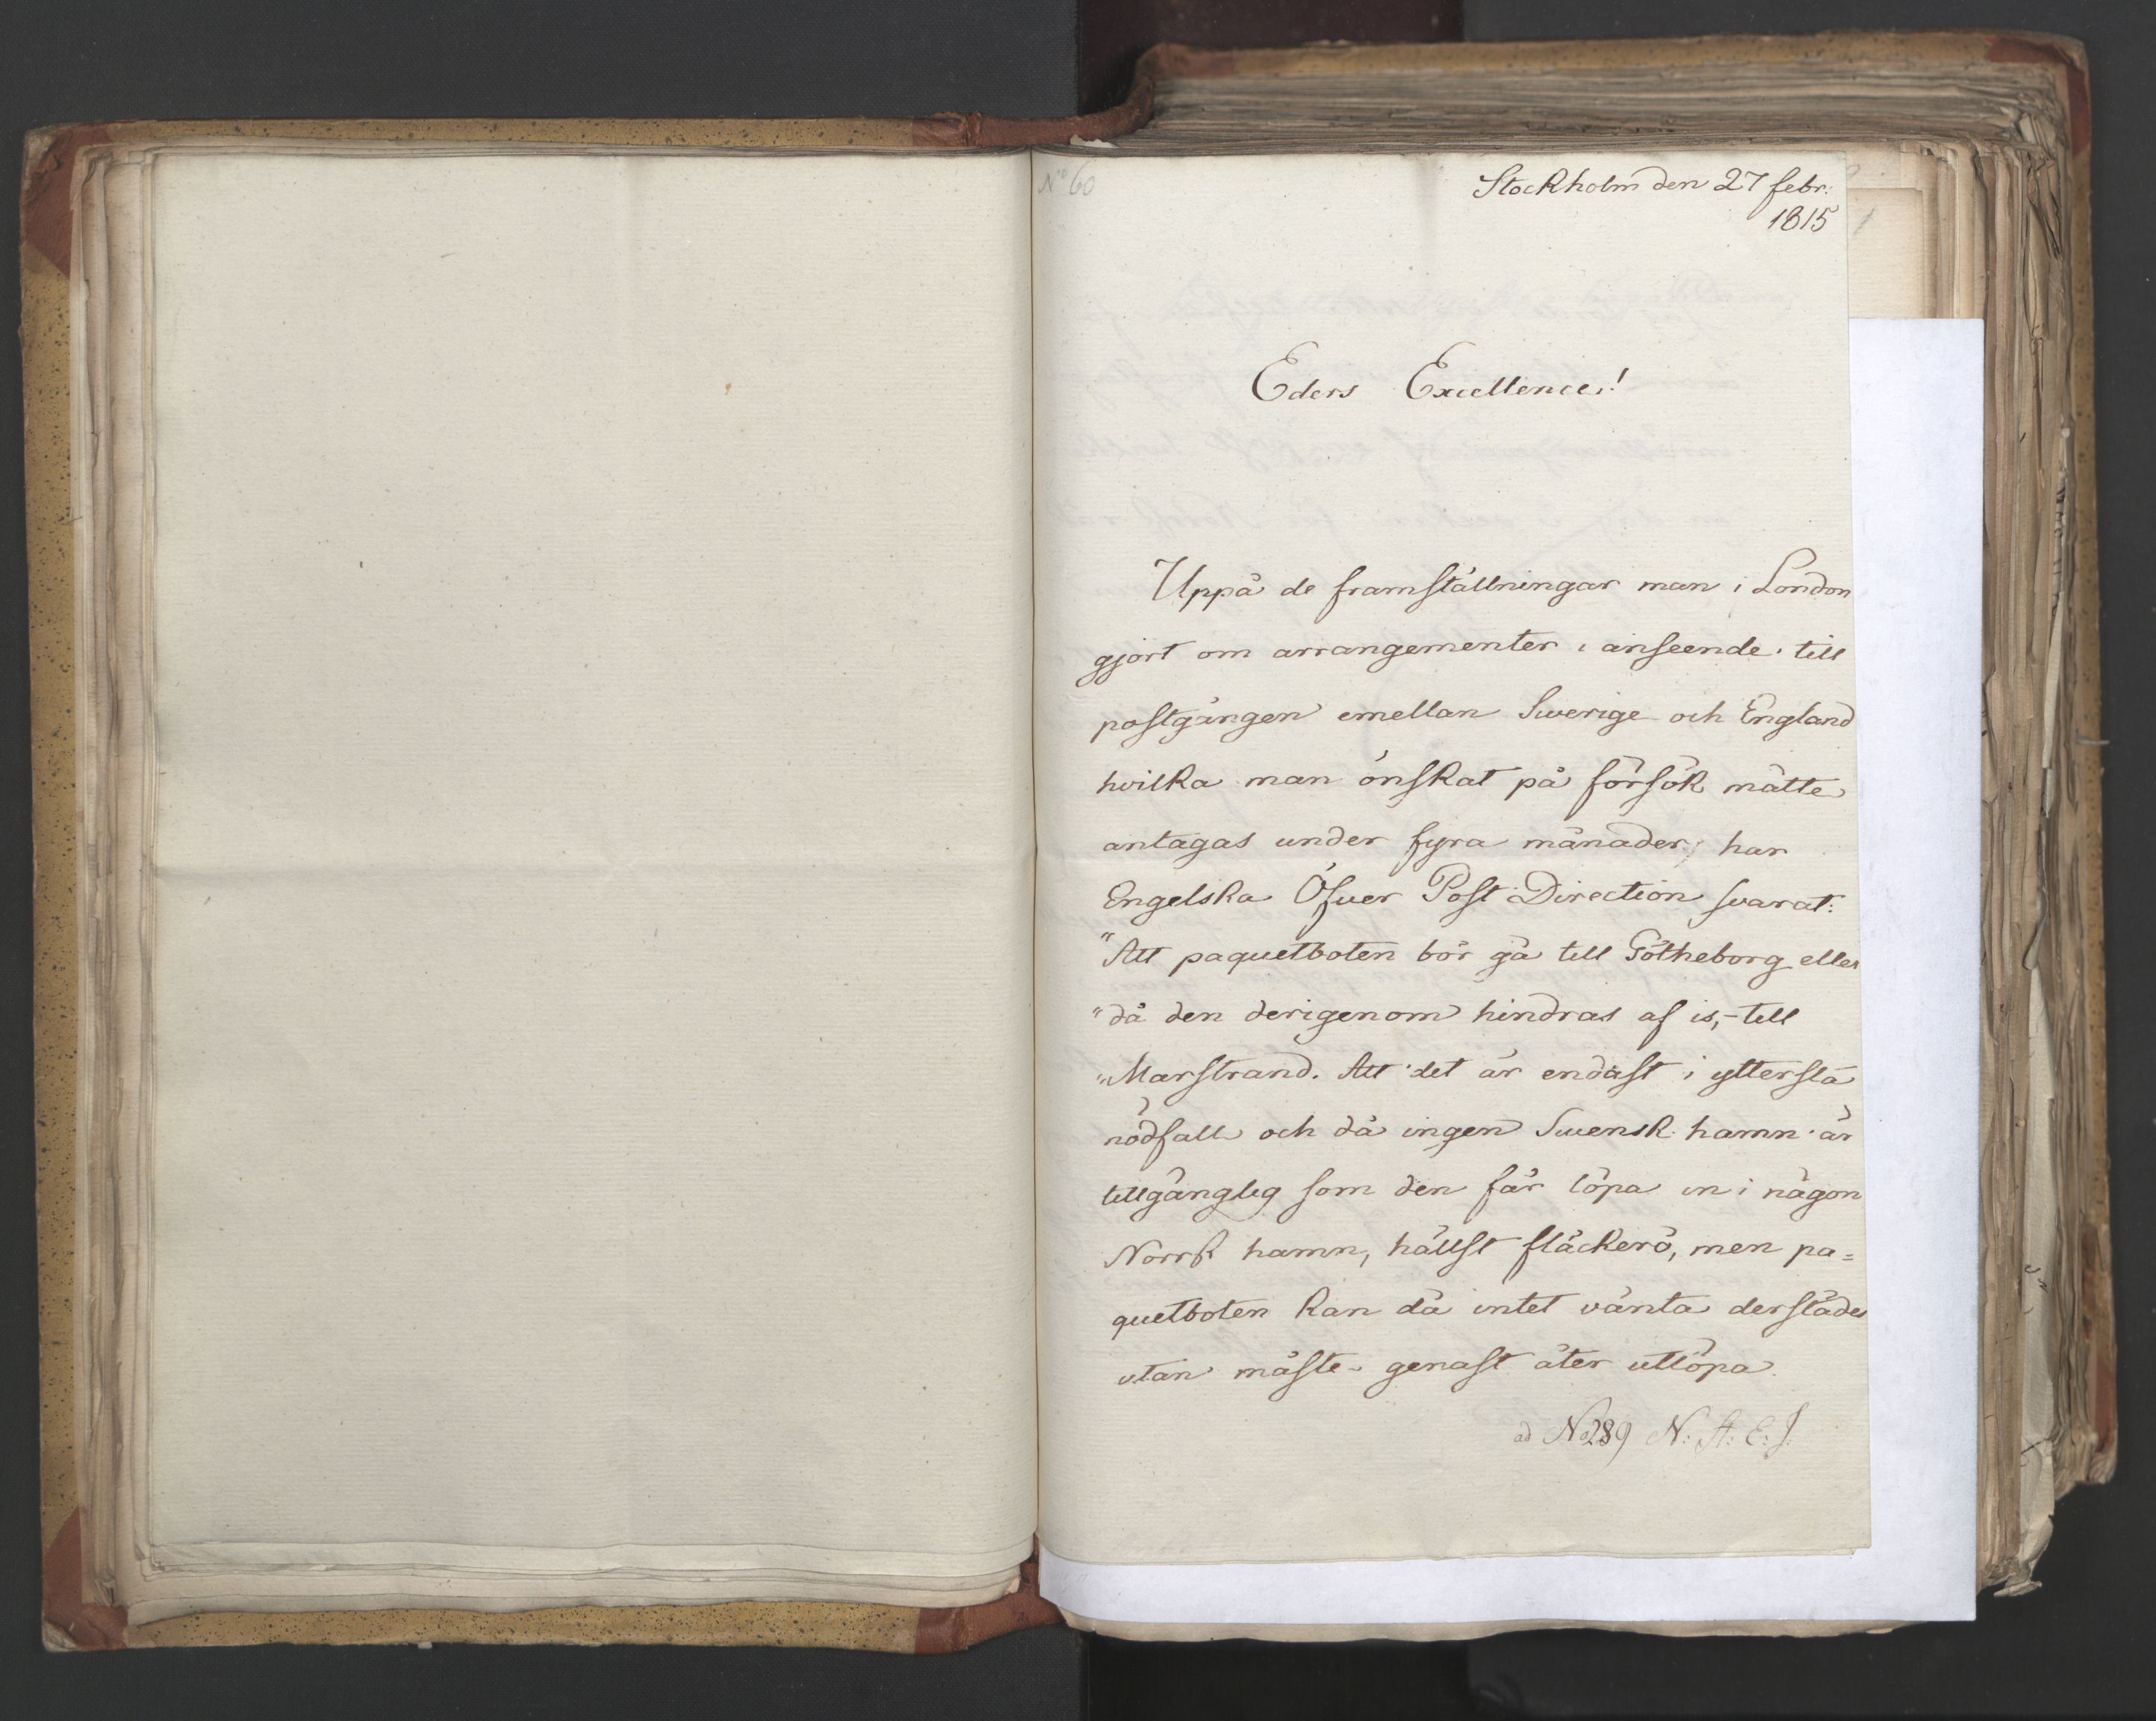 N° 60
Stockholm den 27 febr:
1815
Eders Excellence!
Uppå de framställningar man i London
gjort om arrangementer i anseende till
postgången emellan Swerige och England
hvilka man önskat på försök måtte
antagas under fyra månader, har
Engelska Öfver Post Direction svarat:
"Att paquetboten bör gå till Götheborg eller
"då den derigenom hindras af is, - till
"Marstrand. Att det är endast i yttersta
nödfall och då ingen Swensk hamn är
tillgänglig som den får löpa in i någon
Norrsk hamn, hällst fläckerö, men pa=
quetboten kan då intet vänta derstädes
utan måste genast åter utlöpa.
ad No 289 N: A: E: J: